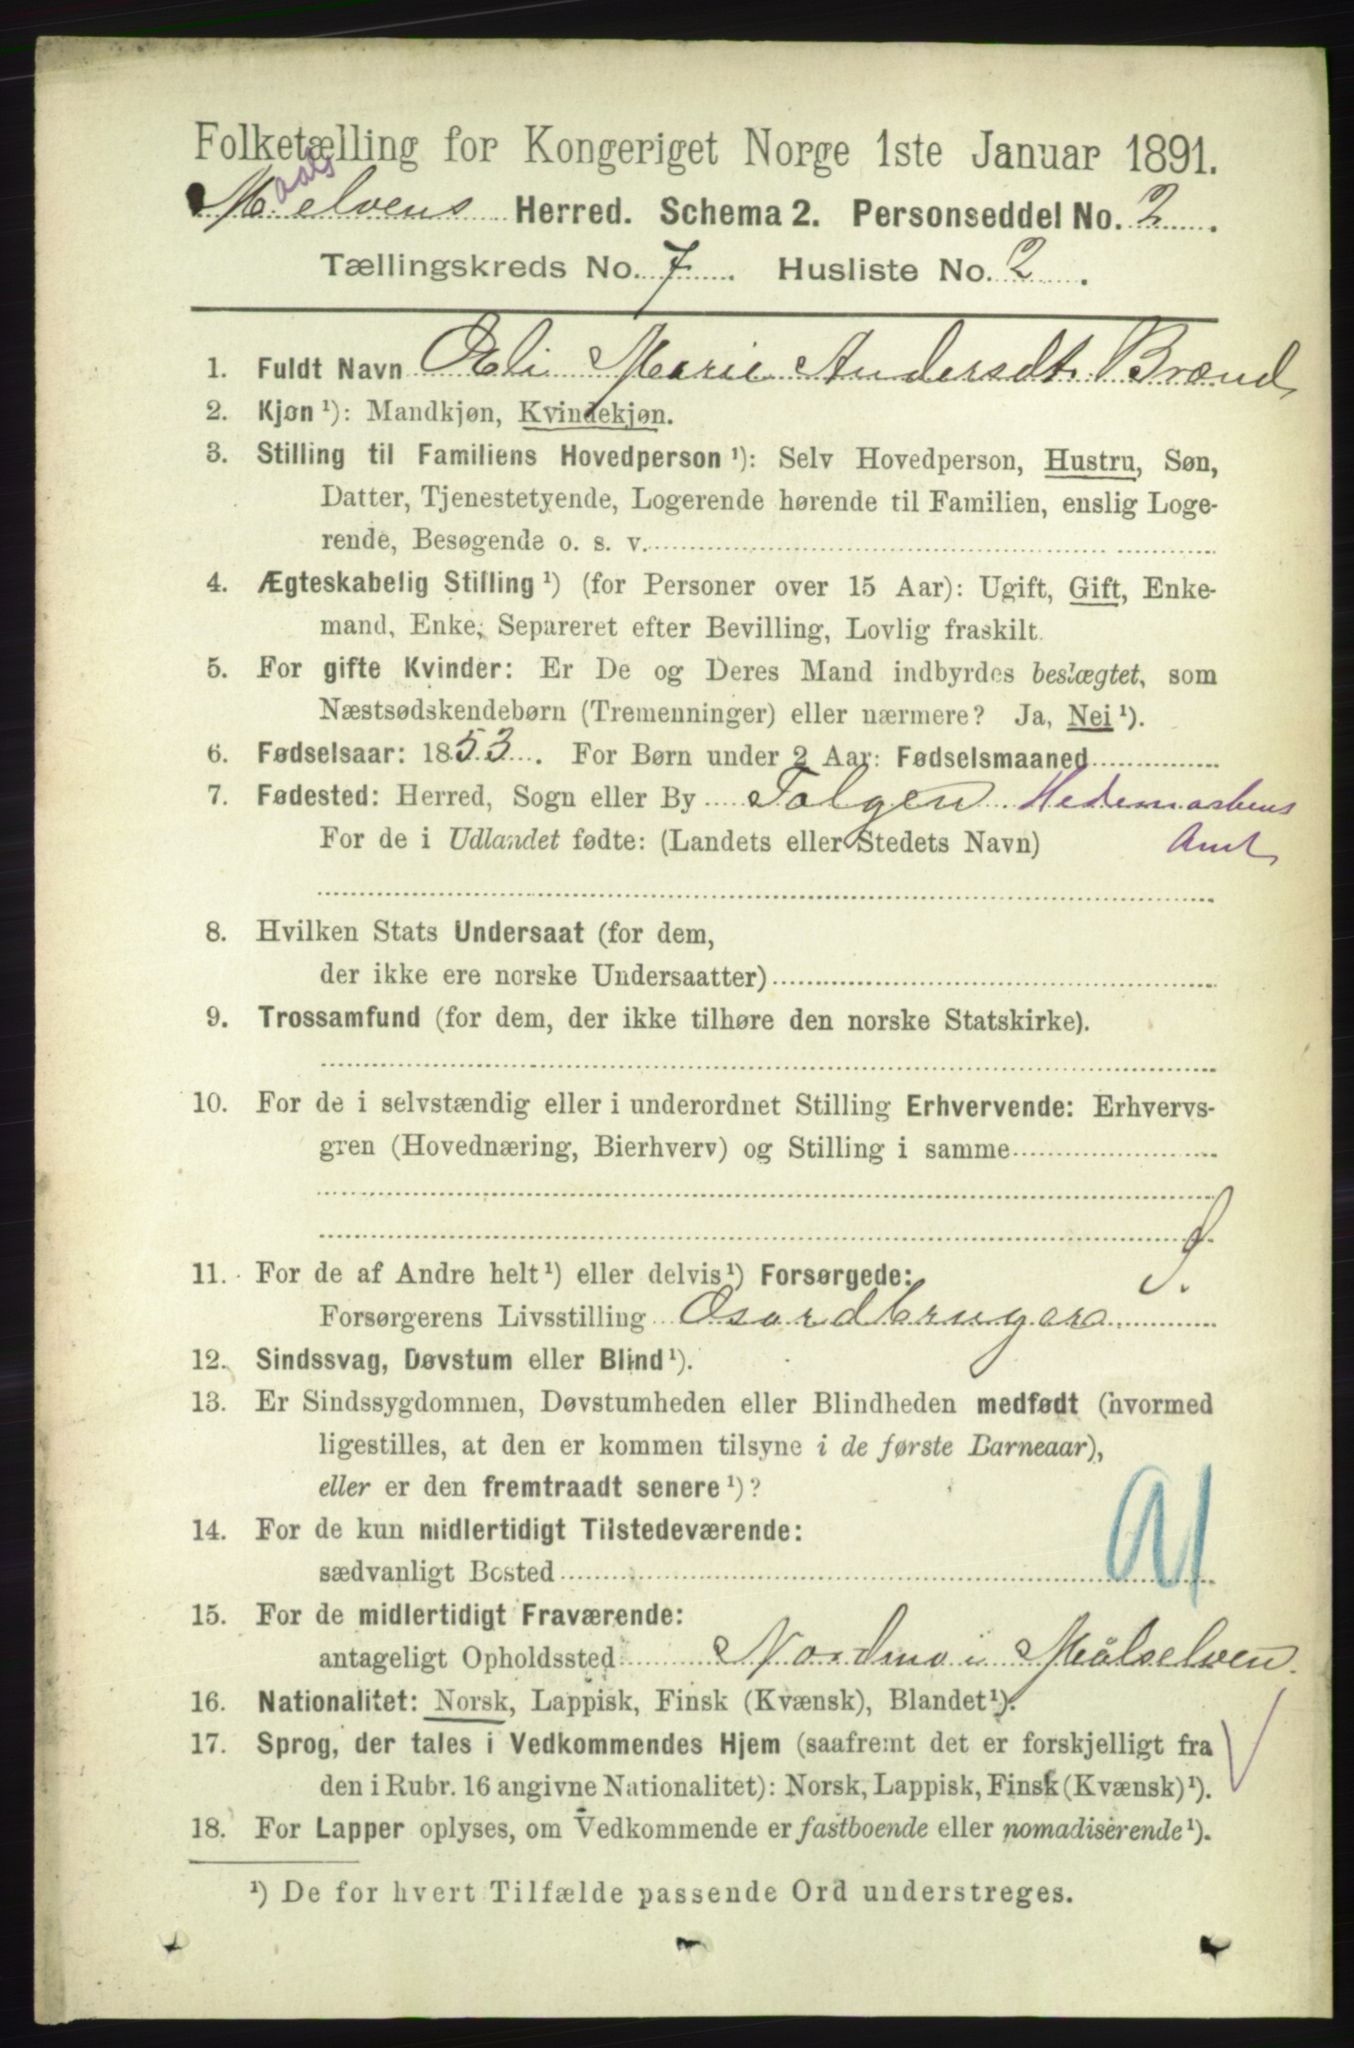 Folketælling for Kongeriget Norge 1ste Januar 1891.
Maalselvens Herred. Schema 2. Personseddel No. 2.
Tællingskreds No. 7. Husliste No. 2.
1. Fuldt Navn Oeli Marie Andersdt. Brænd
2. Kjøn ¹): Mandkjøn, Kvindekjøn.
3. Stilling til Familiens Hovedperson ¹): Selv Hovedperson, Hustru, Søn,
Datter, Tjenestetyende, Logerende hørende til Familien, enslig Loge-
rende, Besøgende o. s. v.
4. Ægteskabelig Stilling ¹) (for Personer over 15 Aar): Ugift, Gift, Enke-
mand, Enke, Separeret efter Bevilling, Lovlig fraskilt.
5. For gifte Kvinder: Er De og Deres Mand indbyrdes beslægtet, som
Næstsødskendebørn (Tremenninger) eller nærmere? Ja, Nei ¹).
6. Fødselsaar: 1853. For Børn under 2 Aar: Fødselsmaaned
7. Fødested: Herred, Sogn eller By Tolgen Hedemarkens
For de i Udlandet fødte: (Landets eller Stedets Navn) Amt
8. Hvilken Stats Undersaat (for dem,
der ikke ere norske Undersaatter)
9. Trossamfund (for dem, der ikke tilhøre den norske Statskirke).
10. For de i selvstændig eller i underordnet Stilling Erhvervende: Erhvervs-
gren (Hovednæring, Bierhverv) og Stilling i samme
11. For de af Andre helt ¹) eller delvis ¹) Forsørgede:
Forsørgerens Livsstilling
12. Sindssvag, Døvstum eller Blind ¹).
13. Er Sindssygdommen, Døvstumheden eller Blindheden medfødt (hvormed
ligestilles, at den er kommen tilsyne i de første Barneaar),
eller er den fremtraadt senere ¹)?
14. For de kun midlertidigt Tilstedeværende:
sædvanligt Bosted
15. For de midlertidigt Fraværende:
antageligt Opholdssted Nordmo i Målselven.
16. Nationalitet: Norsk, Lappisk, Finsk (Kvænsk), Blandet ¹).
17. Sprog, der tales i Vedkommendes Hjem (saafremt det er forskjelligt fra
den i Rubr. 16 angivne Nationalitet): Norsk, Lappisk, Finsk (Kvænsk) ¹).
18. For Lapper oplyses, om Vedkommende er fastboende eller nomadiserende ¹).
¹) De for hvert Tilfælde passende Ord understreges.